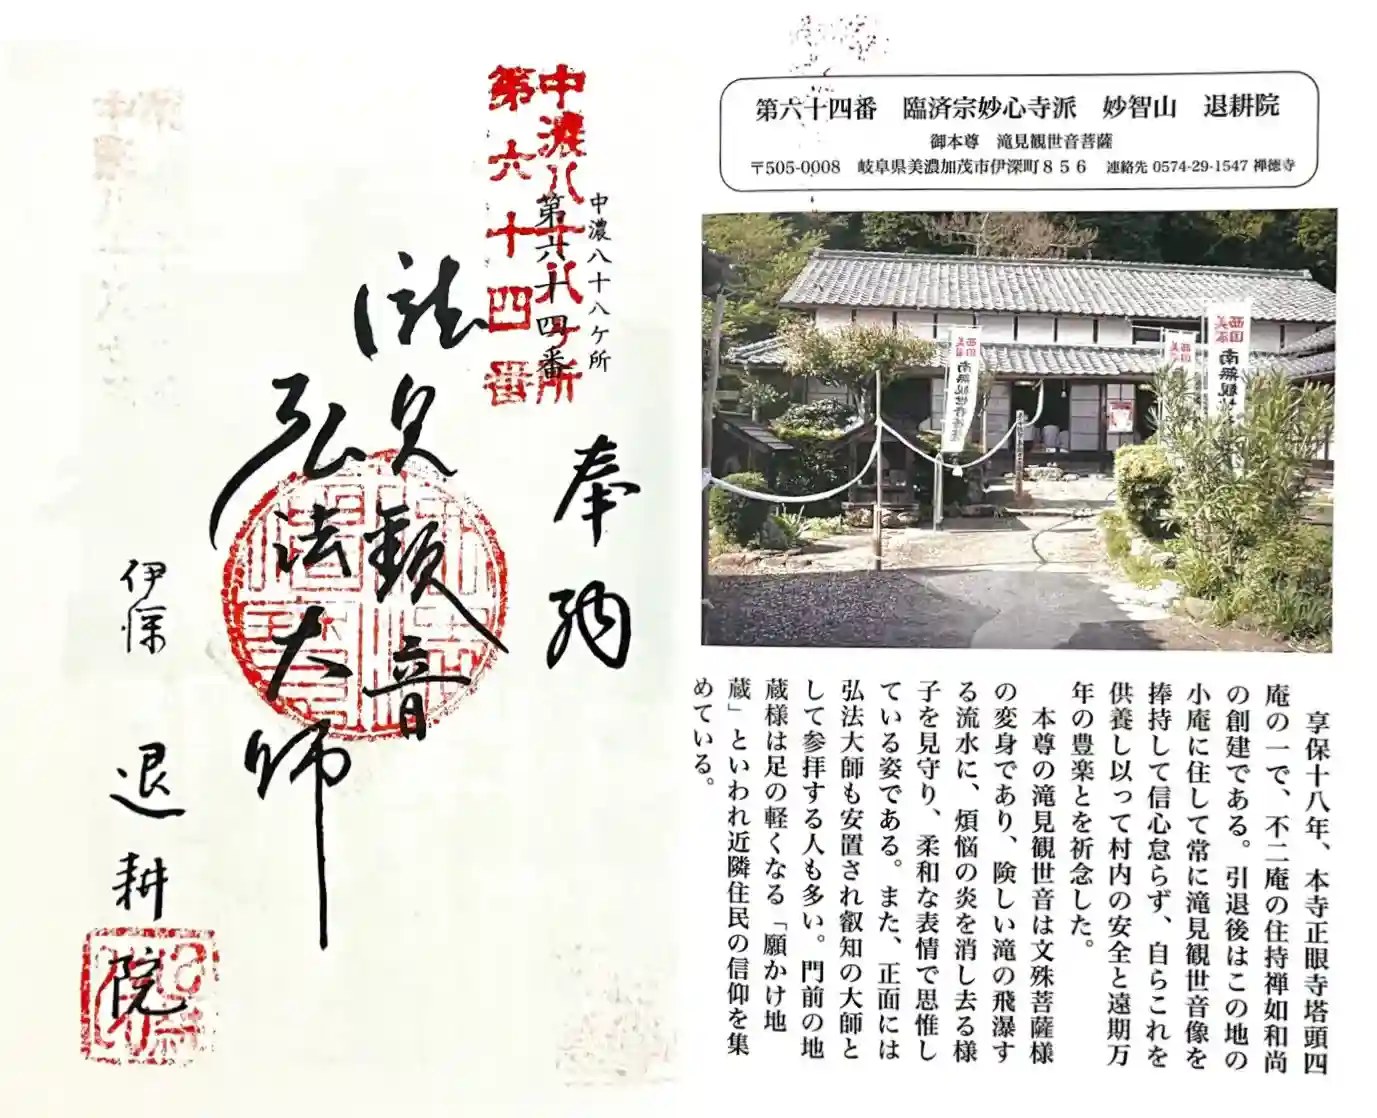 第六十四番　臨済宗妙心寺派　妙智山　退耕院
御本尊　滝見観世音菩薩
〒505-0008　岐阜県美濃加茂市伊深町８５６　連絡先 0574-29-1547 禅徳寺
西国
美濃
南無観世音菩薩
西国
美濃
西国
美濃
南無観世
享保十八年、本寺正眼寺塔頭四
庵の一で、不二庵の住持禅如和尚
の創建である。引退後はこの地の
小庵に住して常に滝見観世音像を
捧持して信心怠らず、自らこれを
供養し以って村内の安全と遠期万
年の豊楽とを祈念した。
本尊の滝見観世音は文殊菩薩様
の変身であり、険しい滝の飛瀑す
る流水に、煩悩の炎を消し去る様
子を見守り、柔和な表情で思惟し
ている姿である。また、正面には
弘法大師も安置され叡知の大師と
して参拝する人も多い。門前の地
蔵様は足の軽くなる「願かけ地
蔵」といわれ近隣住民の信仰を集
めている。
中濃八十八ヶ所
第六十四番
中濃八十八ヶ所
第六十四番
奉納
滝見観音
弘法大師
伊深
退耕院